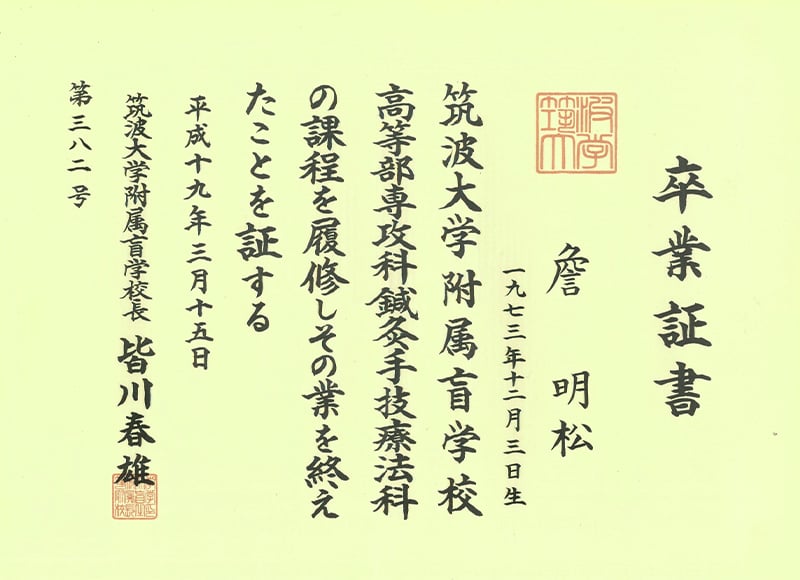 卒業証書
詹 明松
一九七三年十二月三日生
筑波大学附属盲学校
高等部専攻科鍼灸手技療法科
の課程を履修しその業を終え
たことを証する
平成十九年三月十五日
筑波大学附属盲学校長 皆川春雄
第三八二号